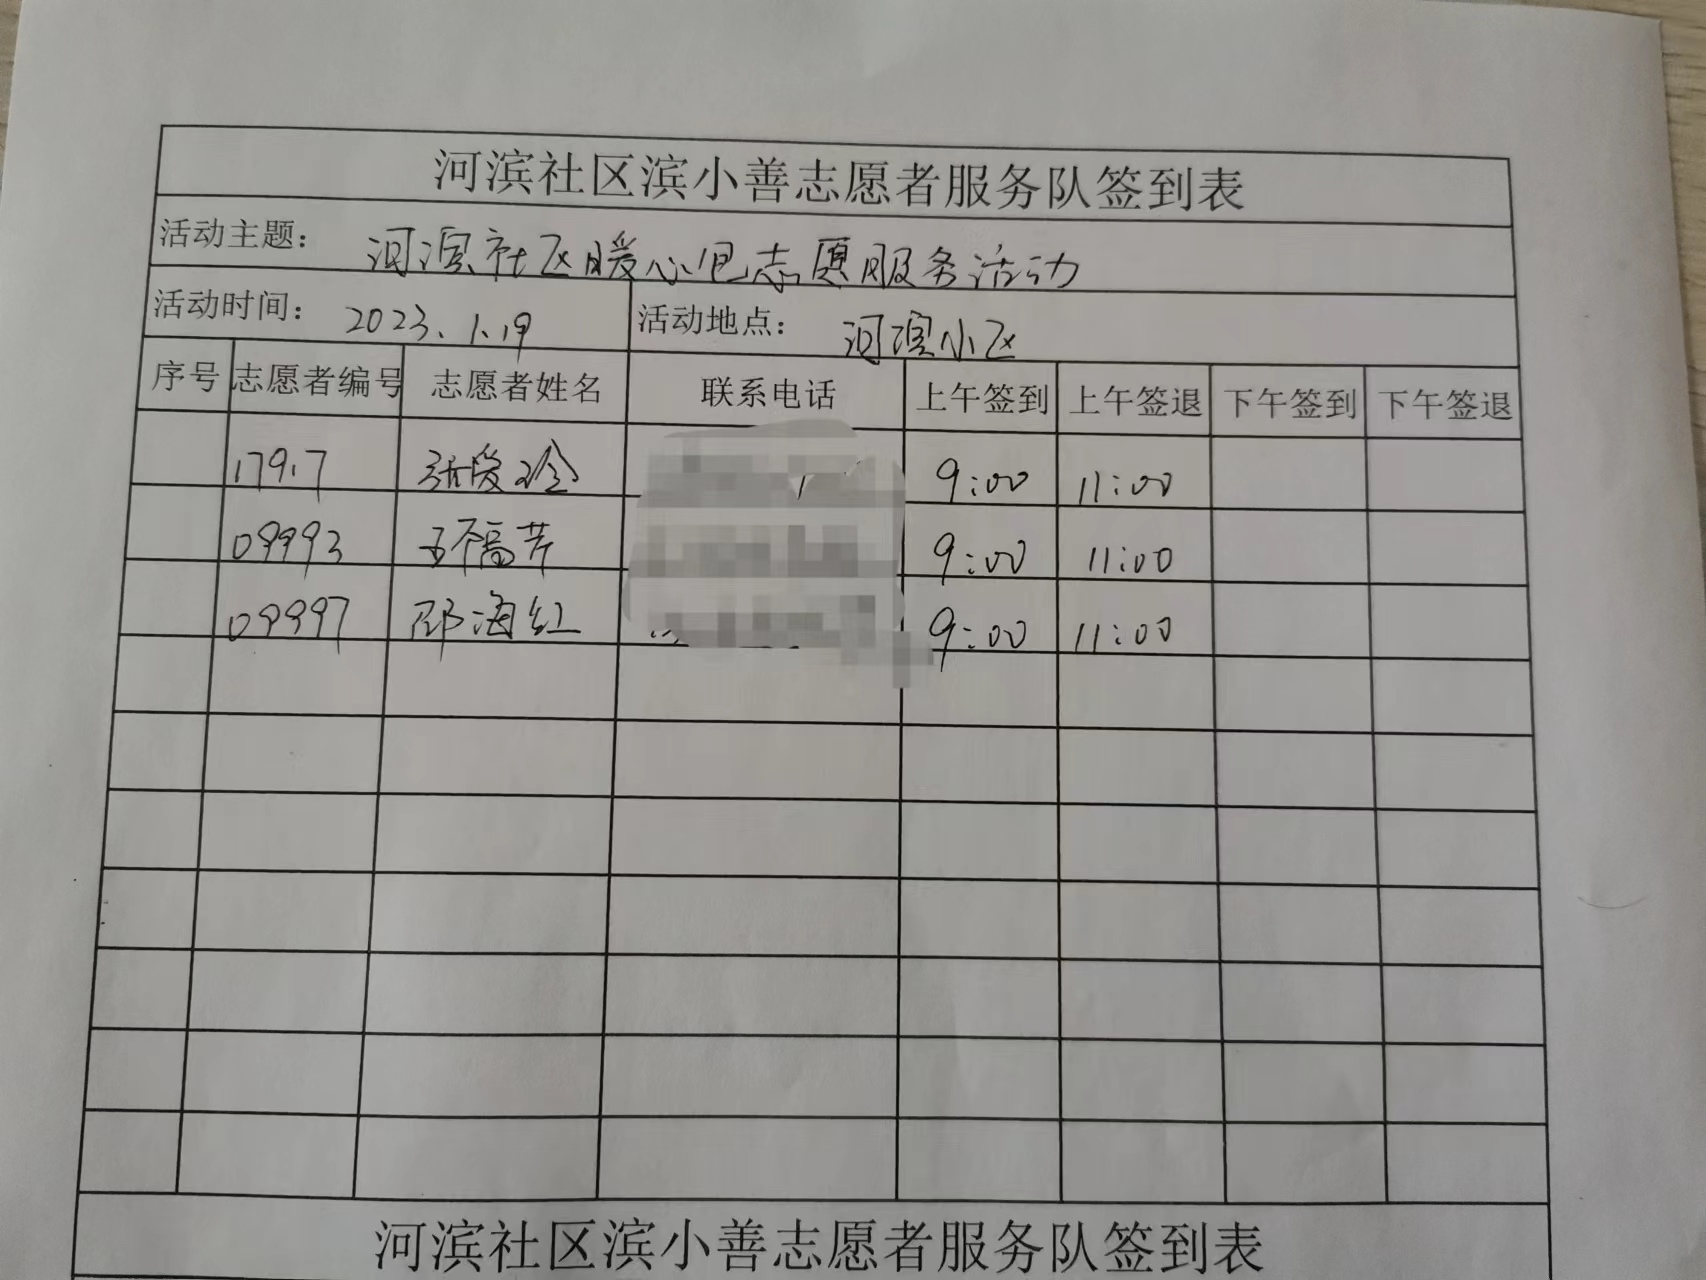 河滨社区滨小善志愿者服务队签到表
活动主题： 河滨社区暖心包志愿服务活动
活动时间： 2023.1.19 活动地点： 河滨小区
序号 志愿者编号 志愿者姓名 联系电话 上午签到 上午签退 下午签到 下午签退
17917 张爱玲 9:00 11:00
09993 王福芹 9:00 11:00
09997 邵海红 9:00 11:00
河滨社区滨小善志愿者服务队签到表